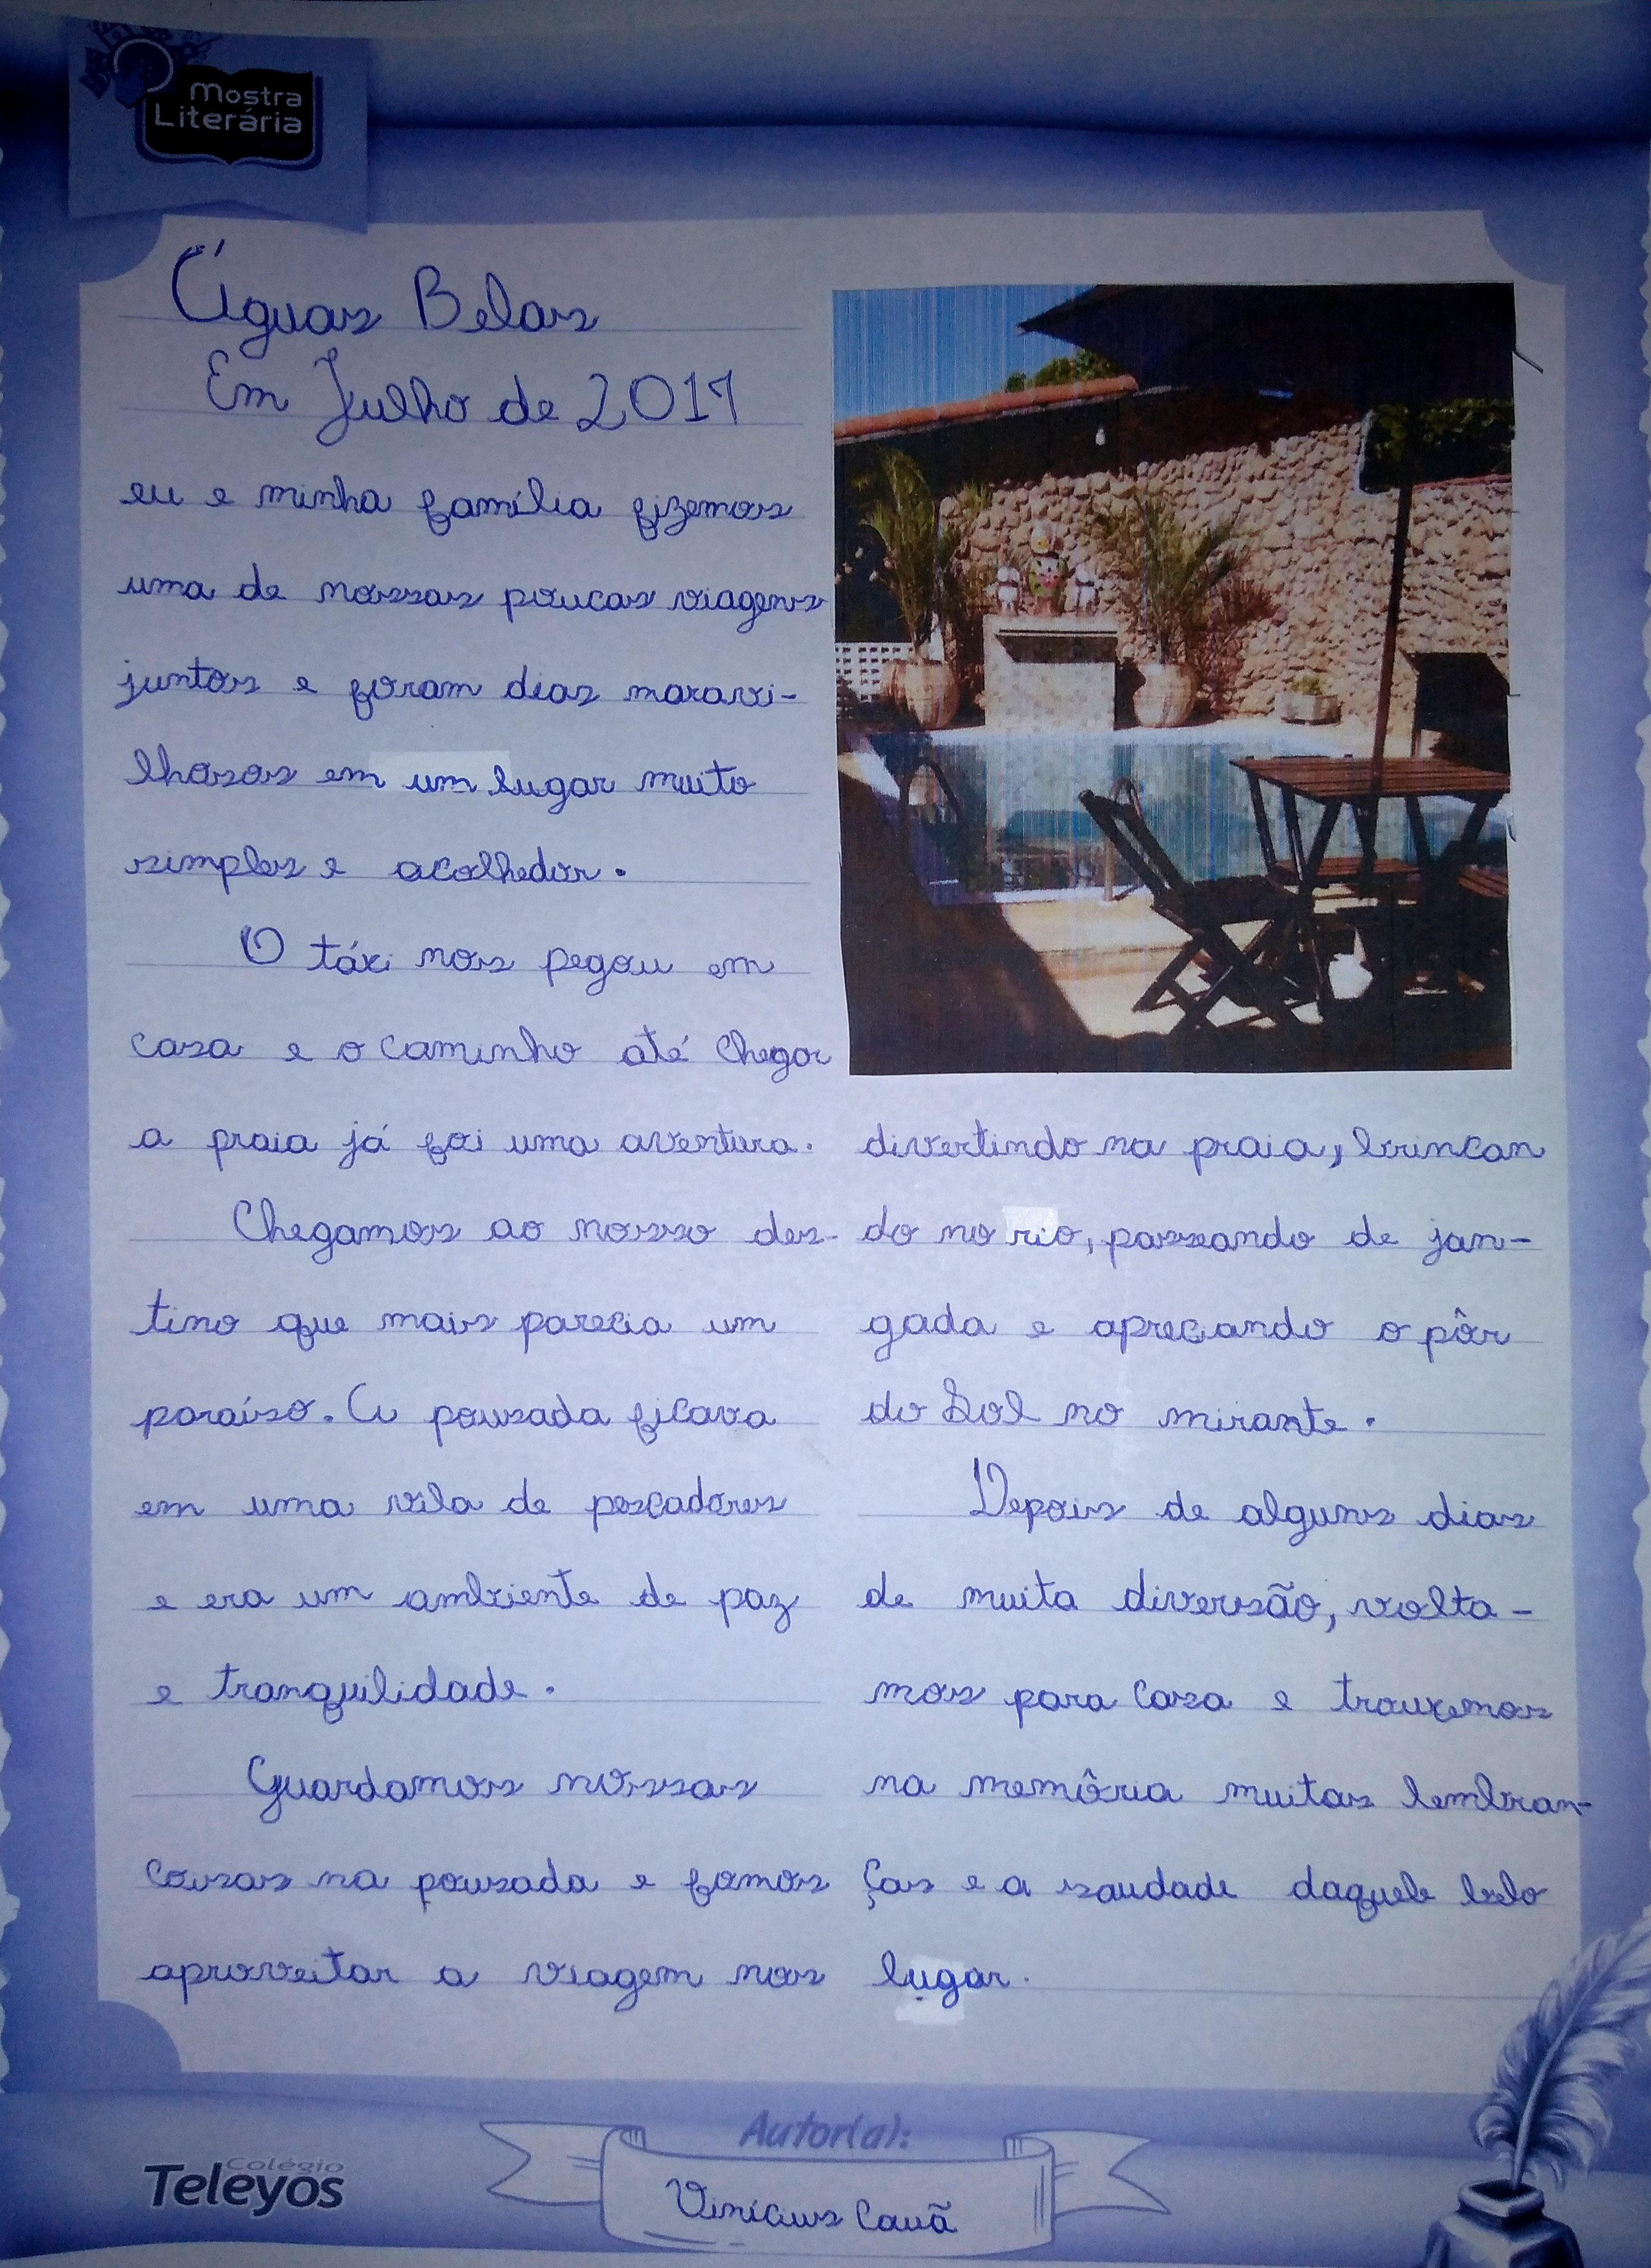 Mostra
Literária
Águas Belas
Em Julho de 2017
eu e minha família fizemos
uma de nossas poucas viagens
juntos e foram dias maravi-
lhosos em um lugar muito
simples e acolhedor.
O táxi nos pegou em
casa e o caminho até chegar
a praia já foi uma aventura.
Chegamos ao nosso des-
tino que mais parecia um
paraíso. A pousada ficava
em uma vila de pescadores
e era um ambiente de paz
e tranquilidade.
Guardamos nossas
coisas na pousada e fomos
aproveitar a viagem nos
divertindo na praia, brincan
do no rio, passeando de jan-
gada e apreciando o pôr
do Sol no mirante.
Depois de alguns dias
de muita diversão, volta-
mos para casa e trouxemos
na memôria muitas lembran-
ças e a saudade daquele belo
lugar.
Colégio
Teleyos
Autor(a):
Vinícius Cauã